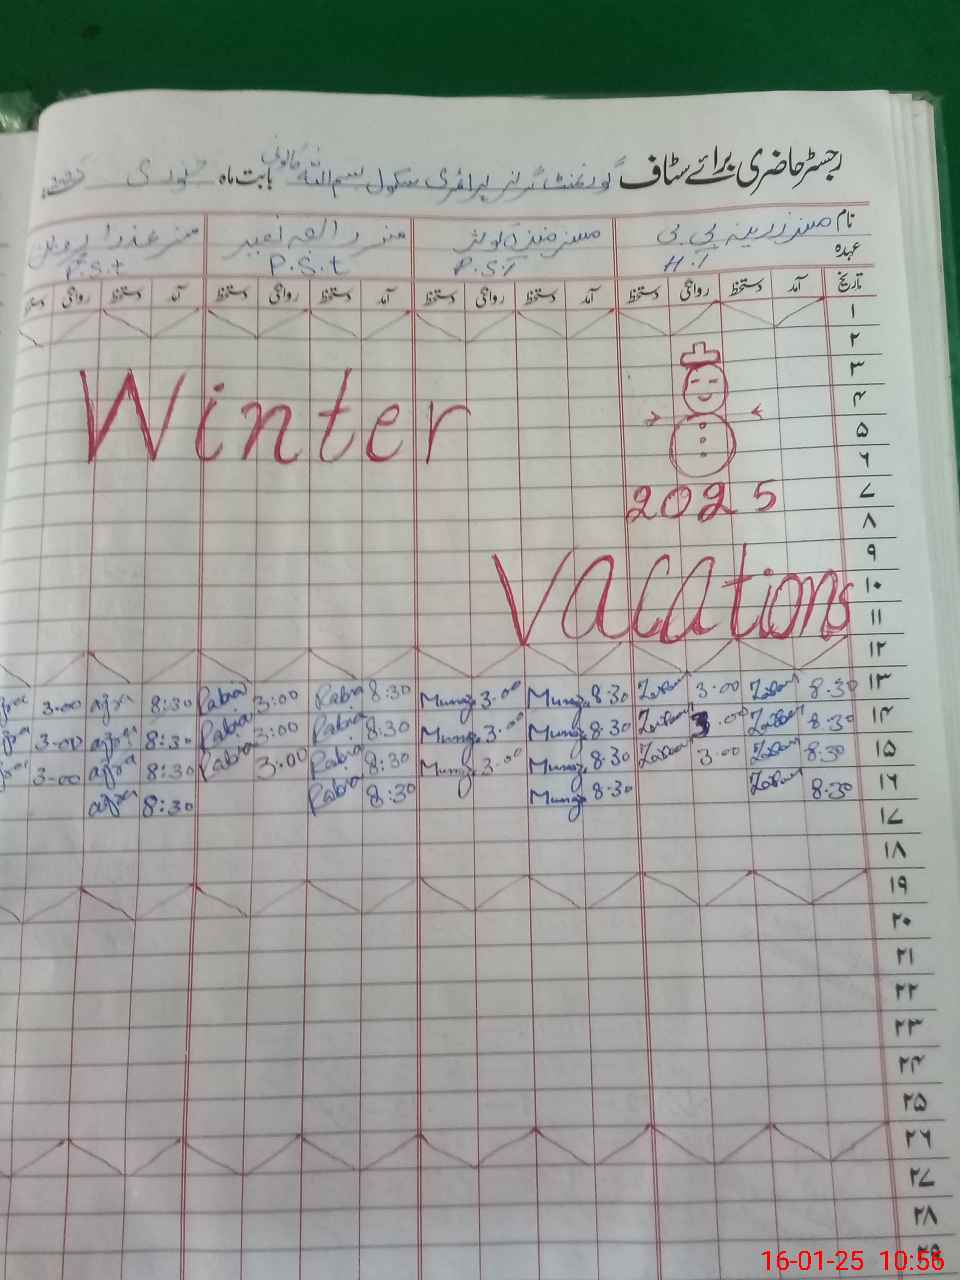 رجسٹر حاضری برائے سٹاف گورنمنٹ گرلز پرائمری سکول بسم اللہ کالونی بابت ماہ جنوری
نام مسز زرینہ بی بی مسز عذرا پروین
عہدہ H.T P.S.T P.S.t P.S.t
تاریخ آمد دستخط روانگی دستخط آمد دستخط روانگی دستخط آمد دستخط روانگی دستخط آمد دستخط روانگی دستخط
۱
۲
۳
۴
Winter
۵
۶
2025
۷
۸
۹
Vacations
۱۰
۱۱
۱۲
3:00 ajra 8:30 Rabia 3:00 Rabia 8:30 3:00 8:30 3:00 8:30 ۱۳
3:00 ajra 8:30 Rabia 3:00 Rabia 8:30 3:00 8:30 3:00 8:30 ۱۴
3:00 ajra 8:30 Rabia 3:00 Rabia 8:30 3:00 8:30 3:00 8:30 ۱۵
ajra 8:30 Rabia 8:30 8:30 8:30 ۱۶
۱۷
۱۸
۱۹
۲۰
۲۱
۲۲
۲۳
۲۴
۲۵
۲۶
۲۷
۲۸
۲۹
16-01-25 10:56